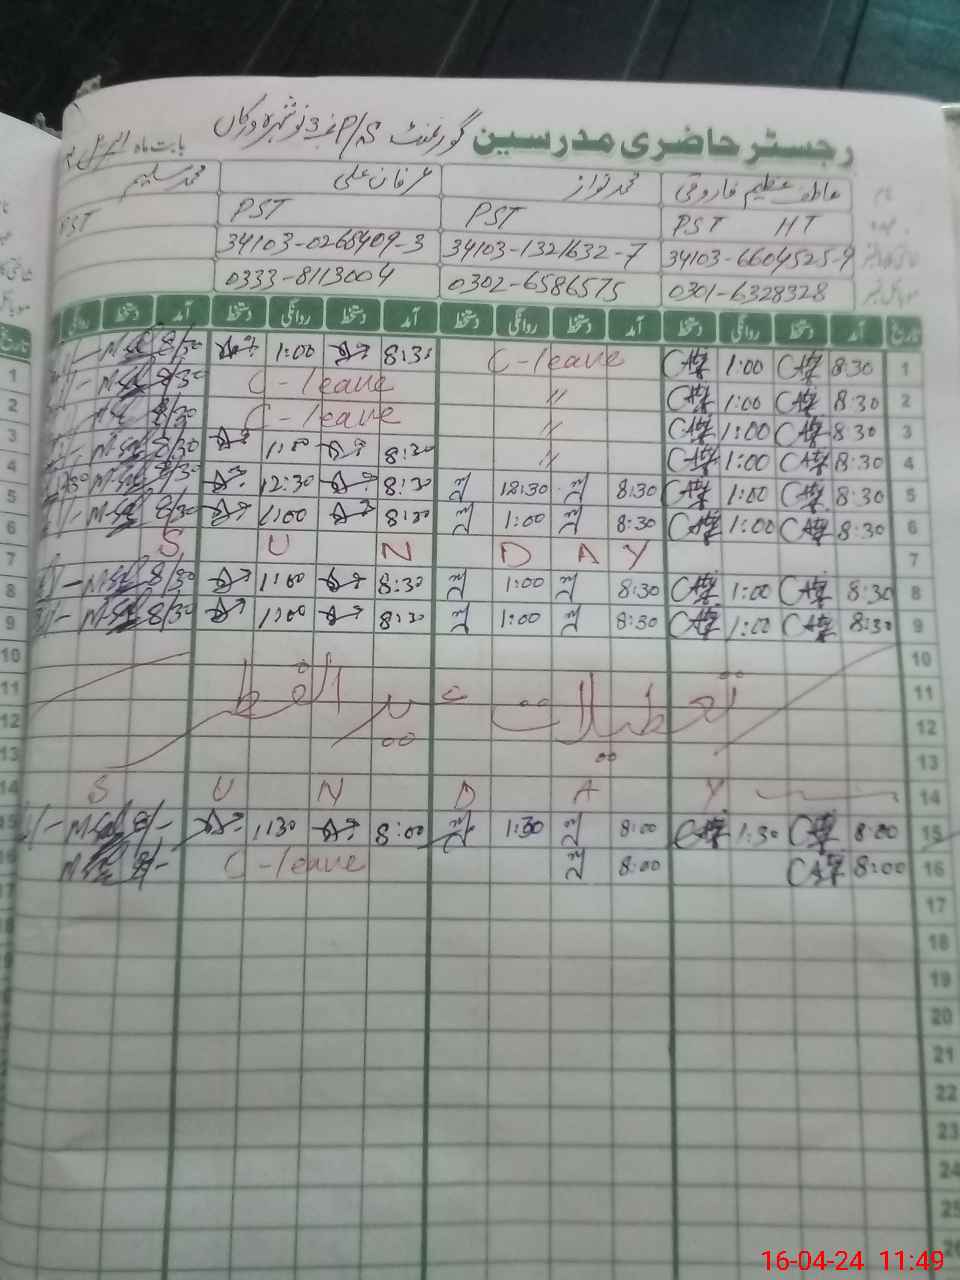 رجسٹر حاضری مدرسین گورنمنٹ P/S نمبر 3 نوشہرہ ورکاں بابت ماہ اپریل
عاطف عظیم فاروقی محمد نواز عرفان علی محمد سلیم
PST HT PST PST PST
34103-6604525-9 34103-1321632-7 34103-0268409-3
0301-6328328 0302-6586575 0333-8113004
تاریخ آمد دستخط روانگی دستخط آمد دستخط روانگی دستخط آمد دستخط روانگی دستخط آمد دستخط روانگی تاریخ
1 8:30 1:00 C-leave 8:30 1:00 8/30 1
2 8:30 1:00 〃 C-leave 8/30 2
3 8:30 1:00 〃 C-leave 8/30 3
4 8:30 1:00 〃 8:30 1:00 8/30 4
5 8:30 1:00 8:30 12:30 8:30 12:30 8/30 5
6 8:30 1:00 8:30 1:00 8:30 1:00 8/30 6
7 S U N D A Y 7
8 8:30 1:00 8:30 1:00 8:30 1:00 8/30 8
9 8:30 1:00 8:30 1:00 8:30 1:00 8/30 9
10 10
11 تعطیلات عید الفطر 11
12 12
13 13
14 S U N D A Y 14
15 8:00 1:30 8:00 1:30 8:00 1:30 8/- 15
16 8:00 8:00 C-leave 8/- 16
17 17
18 18
19
20
21
22
23
24
25
26
16-04-24 11:49